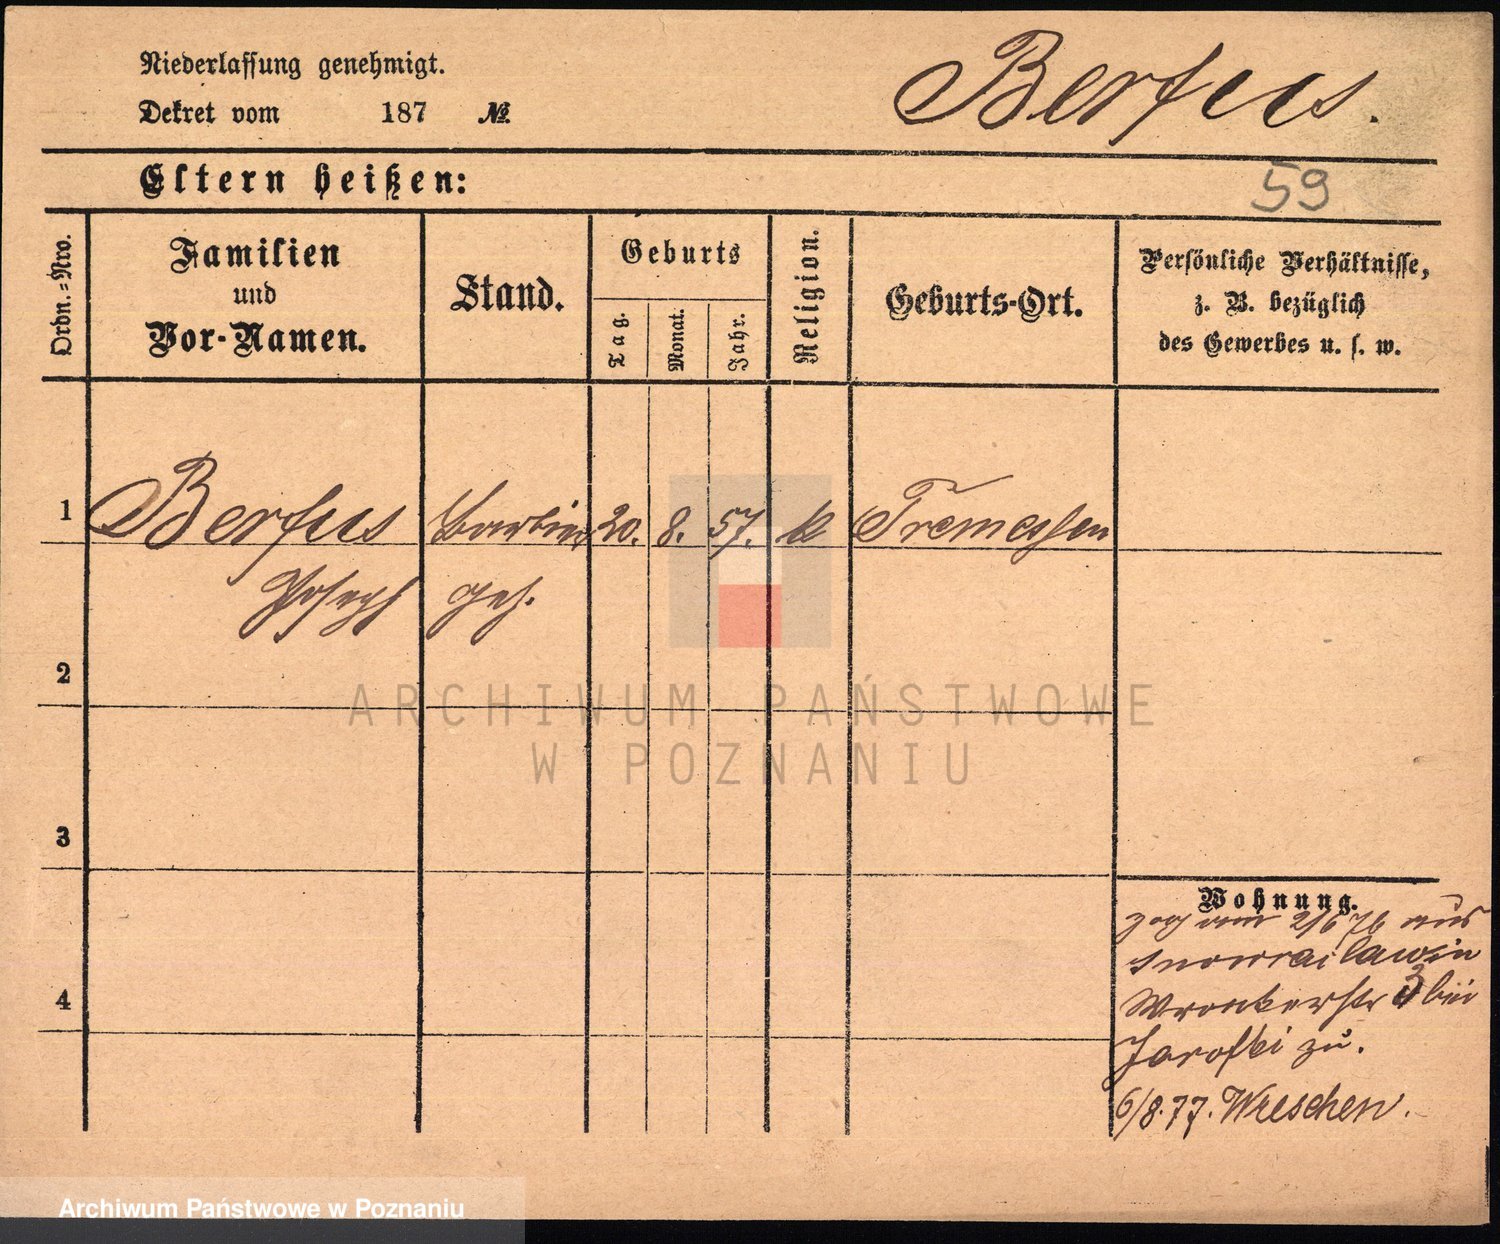 Niederlassung genehmigt.
Dekret vom 187 №
Berfus.
Eltern heißen:
59
Ordn.=Nro.
Familien
und
Vor-Namen.
Stand.
Geburts
Tag.
Monat.
Jahr.
Religion.
Geburts-Ort.
Persönliche Verhältnisse,
z. B. bezüglich
des Gewerbes u. s. w.
1 Berfus Barbier 20. 8. 57. k Tremessen
Joseph geh.
2
ARCHIWUM PAŃSTWOWE
W POZNANIU
3
Wohnung.
zog am 2/6 76 aus
Inowraclaw in
4
Wronkerstr 3 bei
Jarofki zu.
6/8.77. Wreschen.
Archiwum Państwowe w Poznaniu